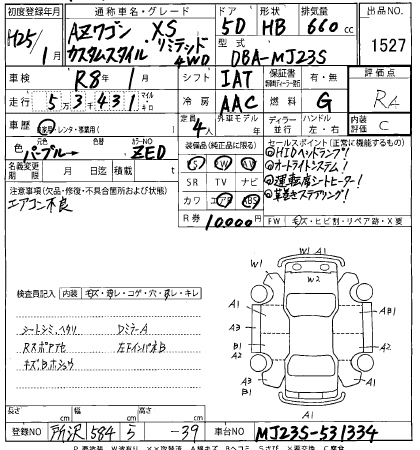 初度登録年月 通称車名・グレード ドア 形状 排気量 出品NO.
H25/1月 AZワゴン XS 5D HB 660cc 1527
カスタムスタイル リミテッド 4WD
型式 DBA-MJ23S
車検 R8年1月 シフト IAT 保証書 有・無 評価点
走行 5万3千431 マイル キロ 冷房 AAC 燃料 G RA
車歴 自家用・レンタ・事業用( ) 定員 4人 外車モデル年 ディーラー 並行 ハンドル 左・右 内装評価 C
色 元色 パープル→ 色替 カラーNO ZED
装備品(純正品に限る) セールスポイント(正常に機能するもの)
名義変更期限 月 日迄 積載 t
PS PW AW
SR TV ナビ
カワ エアB ABS
R券 10,000円
◎HIDヘッドランプ!
◎オートライトシステム!
◎運転席シートヒーター!
◎革巻きステアリング!
FW キズ・ヒビ割・リペア跡・X要
注意事項(欠品・修復・不具合箇所および状態)
エアコン不良
検査員記入 内装 キズ・汚レ・コゲ・穴・ヌレ・キレ
シートシミ、ヘタリ DミラーA
RスポアナB
キズB、ホシュウ
W1 A1
W2
A1 A1
A1 B1
A3 A1
B1 A3
A1 B1
A1
長さ cm 幅 cm 高さ cm
登録NO 所沢 584 ら -39 車台NO MJ23S-531334